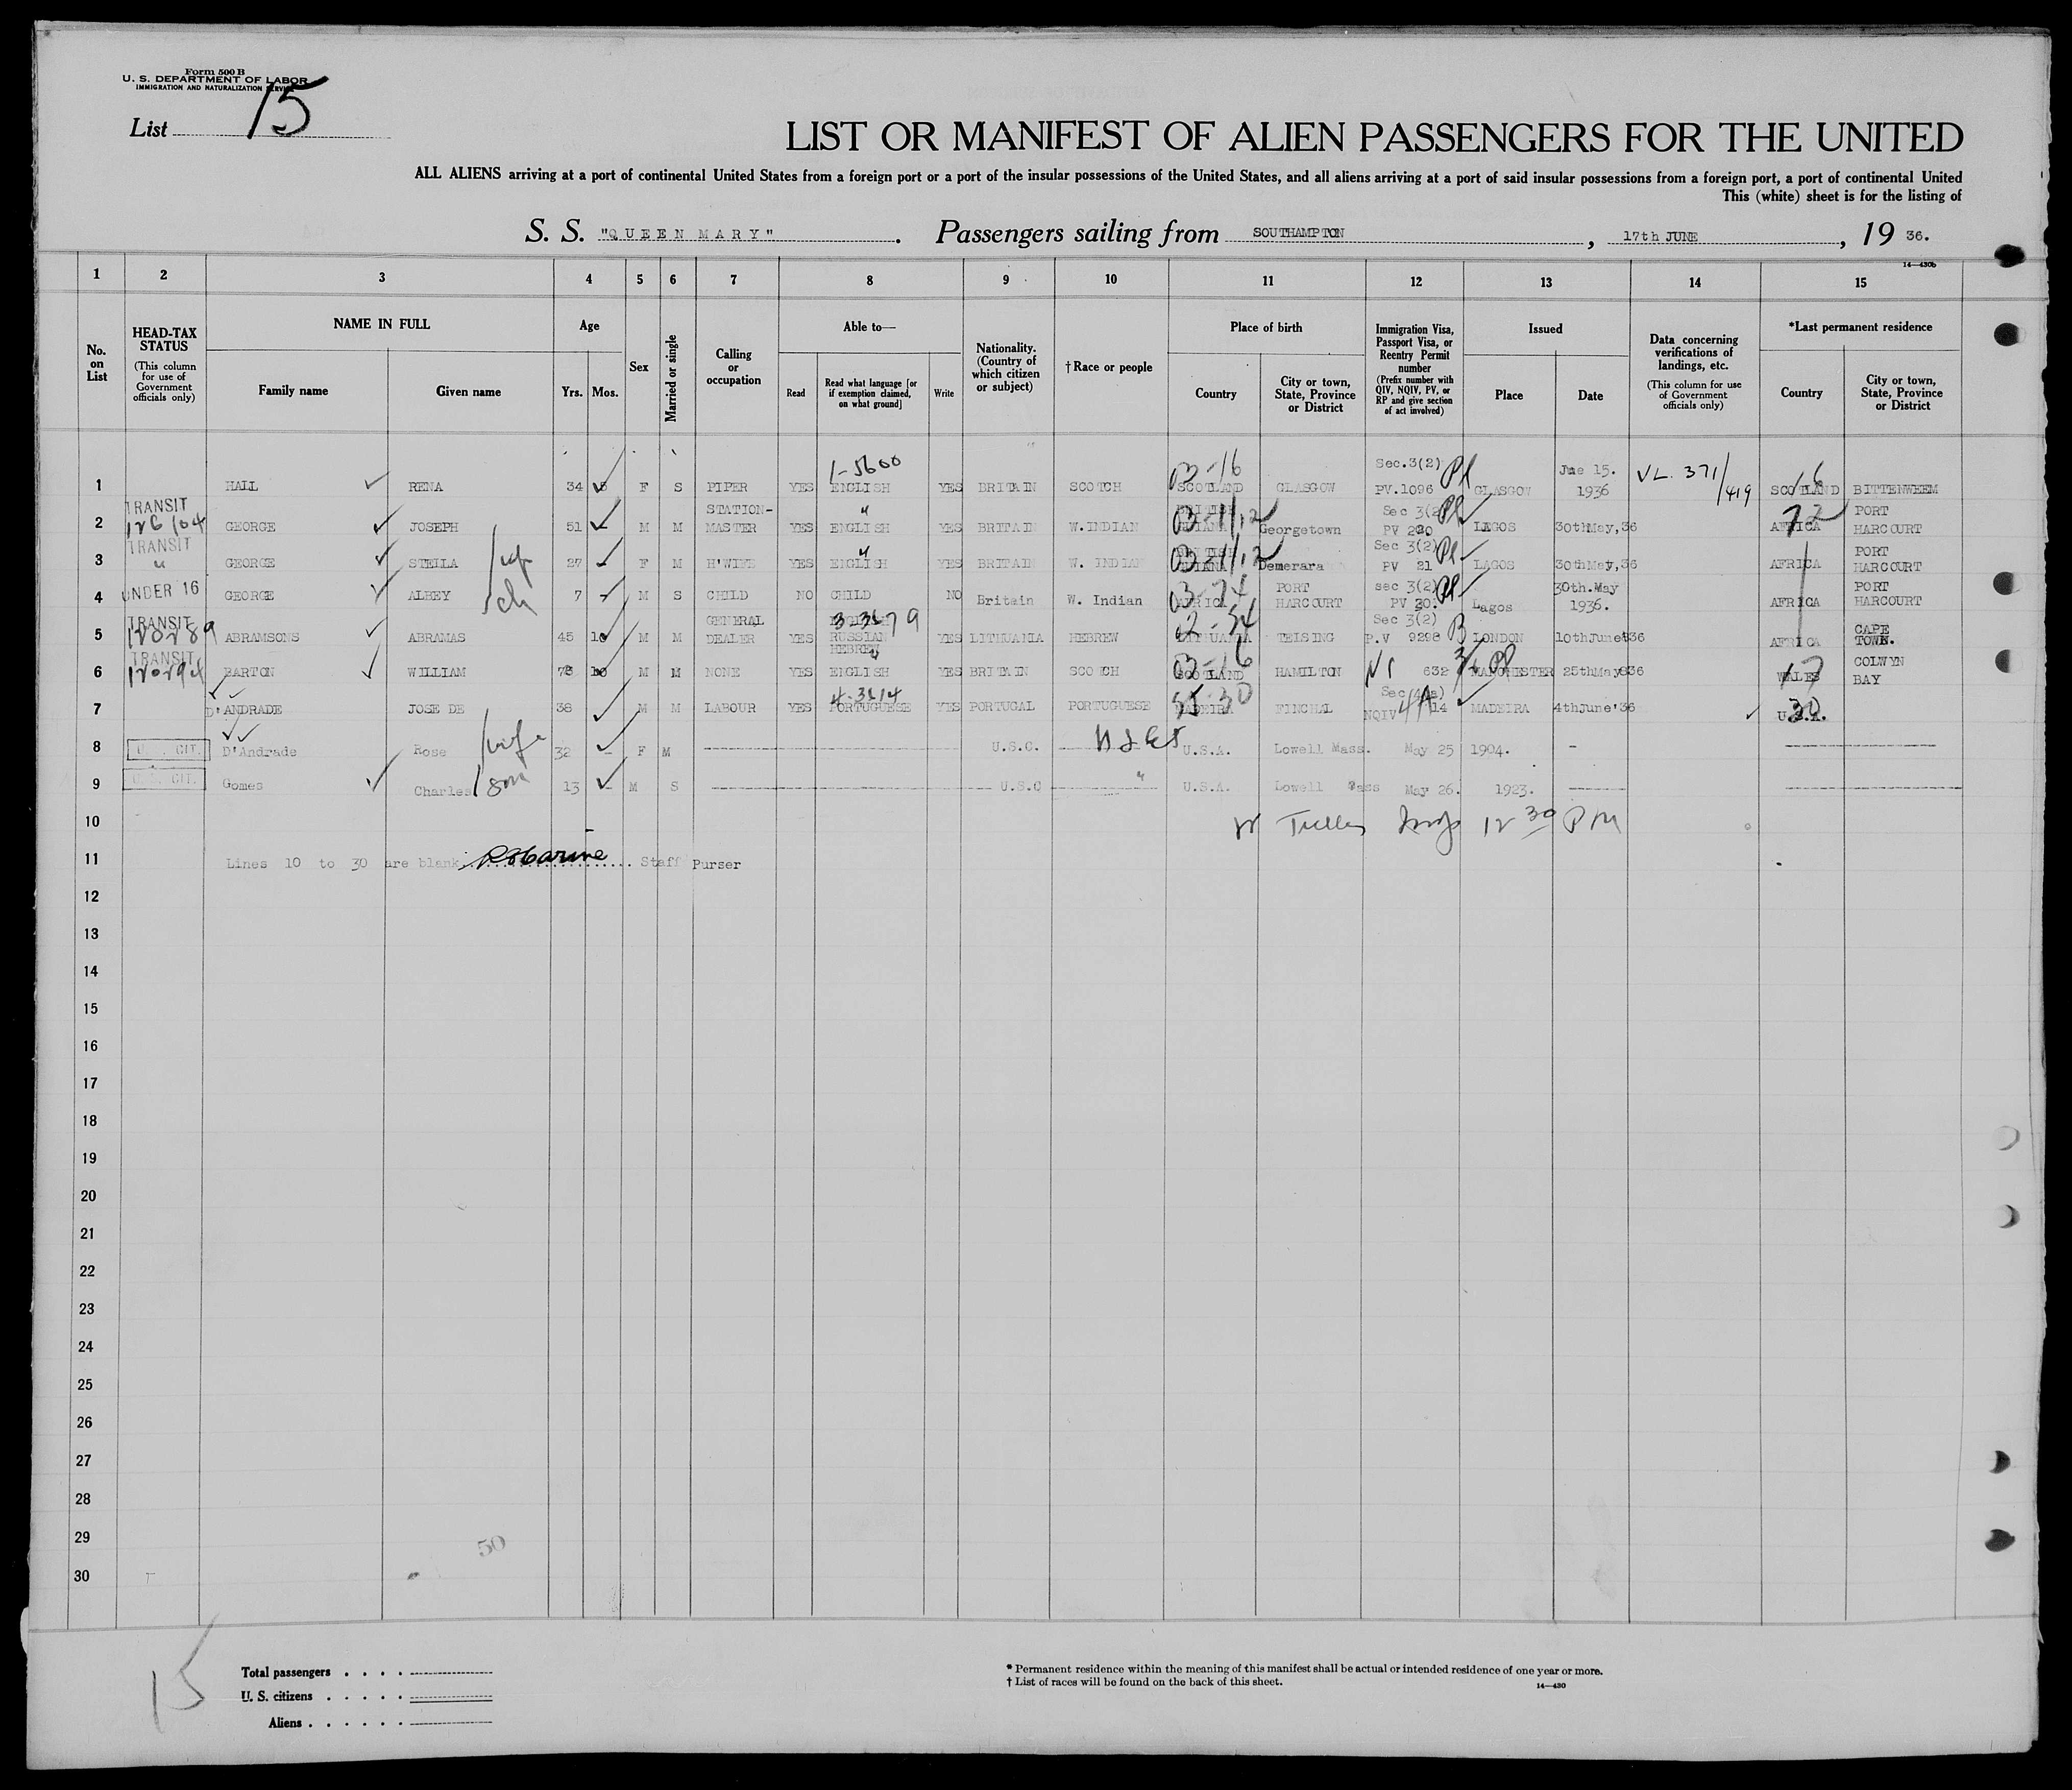 Form 500 B
U. S. DEPARTMENT OF LABOR
IMMIGRATION AND NATURALIZATION SERVICE
List 15
LIST OR MANIFEST OF ALIEN PASSENGERS FOR THE UNITED
ALL ALIENS arriving at a port of continental United States from a foreign port or a port of the insular possessions of the United States, and all aliens arriving at a port of said insular possessions from a foreign port, a port of continental United
This (white) sheet is for the listing of
S. S. "QUEEN MARY". Passengers sailing from SOUTHAMPTON, 17th JUNE, 19 36.
14—430b
1 2 3 4 5 6 7 8 9 10 11 12 13 14 15
No. on List
HEAD-TAX STATUS (This column for use of Government officials only)
NAME IN FULL Family name Given name
Age Yrs. Mos.
Sex
Married or single
Calling or occupation
Able to— Read Read what language [or if exemption claimed, on what ground] Write
Nationality. (Country of which citizen or subject)
†Race or people
Place of birth Country City or town, State, Province or District
Immigration Visa, Passport Visa, or Reentry Permit number (Prefix number with QIV, NQIV, PV, or RP and give section of act involved)
Issued Place Date
Data concerning verifications of landings, etc. (This column for use of Government officials only)
*Last permanent residence Country City or town, State, Province or District
1-5600 03-16 Sec.3(2) June 15. VL. 371/419 16
1 HALL RENA 34 F S PIPER YES ENGLISH YES BRITAIN SCOTCH SCOTLAND GLASGOW PV.1096 GLASGOW 1936 SCOTLAND BITTENWEEM
TRANSIT STATION- " BRITISH Sec 3(2) 72 PORT
2 126104 GEORGE JOSEPH 51 M M MASTER YES ENGLISH YES BRITAIN W.INDIAN GUIANA Georgetown PV 220 LAGOS 30thMay,36 AFRICA HARCOURT
TRANSIT " BRITISH Sec 3(2) PORT
3 " GEORGE STELLA wf 27 F M H'WIFE YES ENGLISH YES BRITAIN W. INDIAN GUIANA Demerara PV 21 LAGOS 30thMay,36 AFRICA HARCOURT
UNDER 16 03-74 PORT sec 3(2) 30th.May PORT
4 GEORGE ALBEY ch 7 M S CHILD NO CHILD NO Britain W. Indian AFRICA HARCOURT PV 20. Lagos 1936. AFRICA HARCOURT
TRANSIT GENERAL ENGLISH 3-3679 Sec 3(2) CAPE
5 120289 ABRAMSONS ABRAMAS 45 10 M M DEALER YES RUSSIAN HEBREW YES LITHUANIA HEBREW LITHUANIA TELSING P.V 9298 LONDON 10thJune'36 AFRICA TOWN.
TRANSIT " 03-16 COLWYN
6 120294 BARTON WILLIAM 10 M M NONE YES ENGLISH YES BRITAIN SCOTCH SCOTLAND HAMILTON 632 MANCHESTER 25thMay'36 WALES BAY
4-3614 55-30 4A 30
7 D'ANDRADE JOSE DE 38 M M LABOUR YES PORTUGUESE YES PORTUGAL PORTUGUESE MADEIRA FINCHAL NQIV 14 MADEIRA 4thJune'36 U.S.A.
8 U. S. CIT. D'Andrade Rose wife 32 - F M U.S.C. U.S.A. Lowell Mass. May 25 1904. -
9 U. S. CIT. Gomes Charles son 13 - M S U.S.C " U.S.A. Lowell Mass May 26. 1923.
10 12 30 PM
11 Lines 10 to 30 are blank. Staff Purser
12
13
14
15
16
17
18
19
20
21
22
23
24
25
26
27
28
29
50
30
15
Total passengers
U. S. citizens
Aliens
* Permanent residence within the meaning of this manifest shall be actual or intended residence of one year or more.
† List of races will be found on the back of this sheet.
14—430